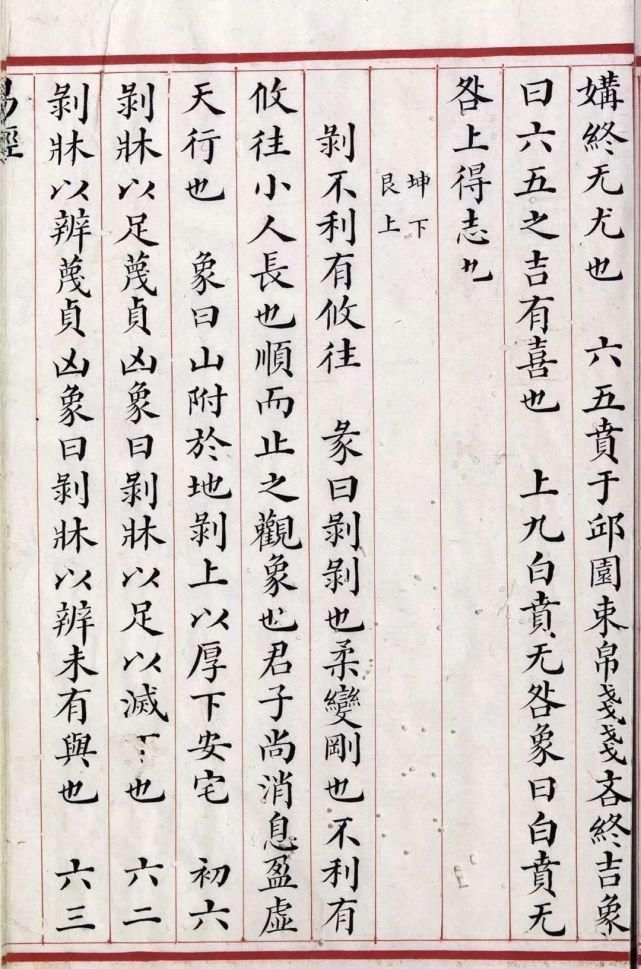 媾終无尤也　六五賁于邱園束帛戔戔吝終吉象
曰六五之吉有喜也　上九白賁无咎象曰白賁无
咎上得志也
坤下
艮上
剝不利有攸往　彖曰剝剝也柔變剛也不利有
攸往小人長也順而止之觀象也君子尚消息盈虛
天行也　象曰山附於地剝上以厚下安宅　初六
剝牀以足蔑貞凶象曰剝牀以足以滅下也　六二
剝牀以辨蔑貞凶象曰剝牀以辨未有與也　六三
易經